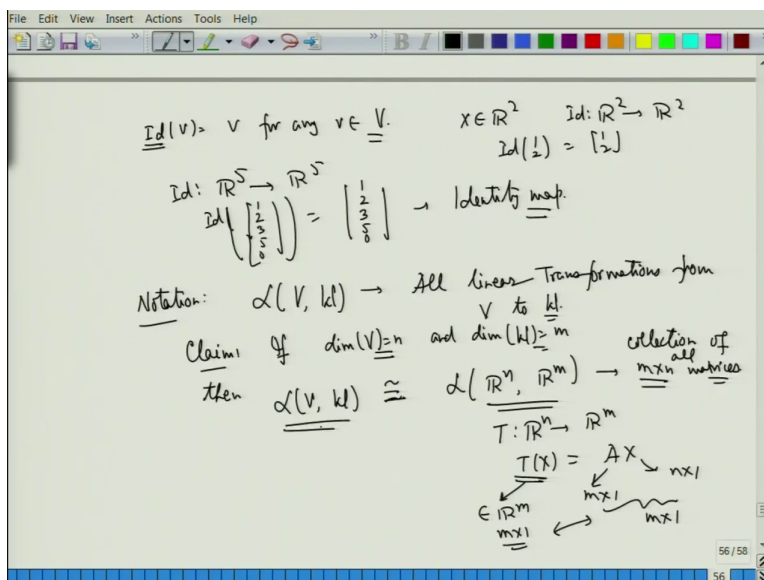 File Edit View Insert Actions Tools Help
B I
Id(v) = v for any v ∈ V.
x ∈ ℝ² Id: ℝ² → ℝ²
Id(1 2) = [1 2]
Id: ℝ⁵ → ℝ⁵
Id([1 2 3 5 0]) = [1 2 3 5 0] → Identity map.
Notation: L(V, W) → All linear Transformations from
V to W.
Claim: If dim(V) = n and dim(W) = m
then L(V, W) ≅ L(ℝⁿ, ℝᵐ) → collection of all
m×n matrices
T: ℝⁿ → ℝᵐ
T(X) = AX
n×1
∈ ℝᵐ m×1
m×1 ↔ m×1
56 / 58
56